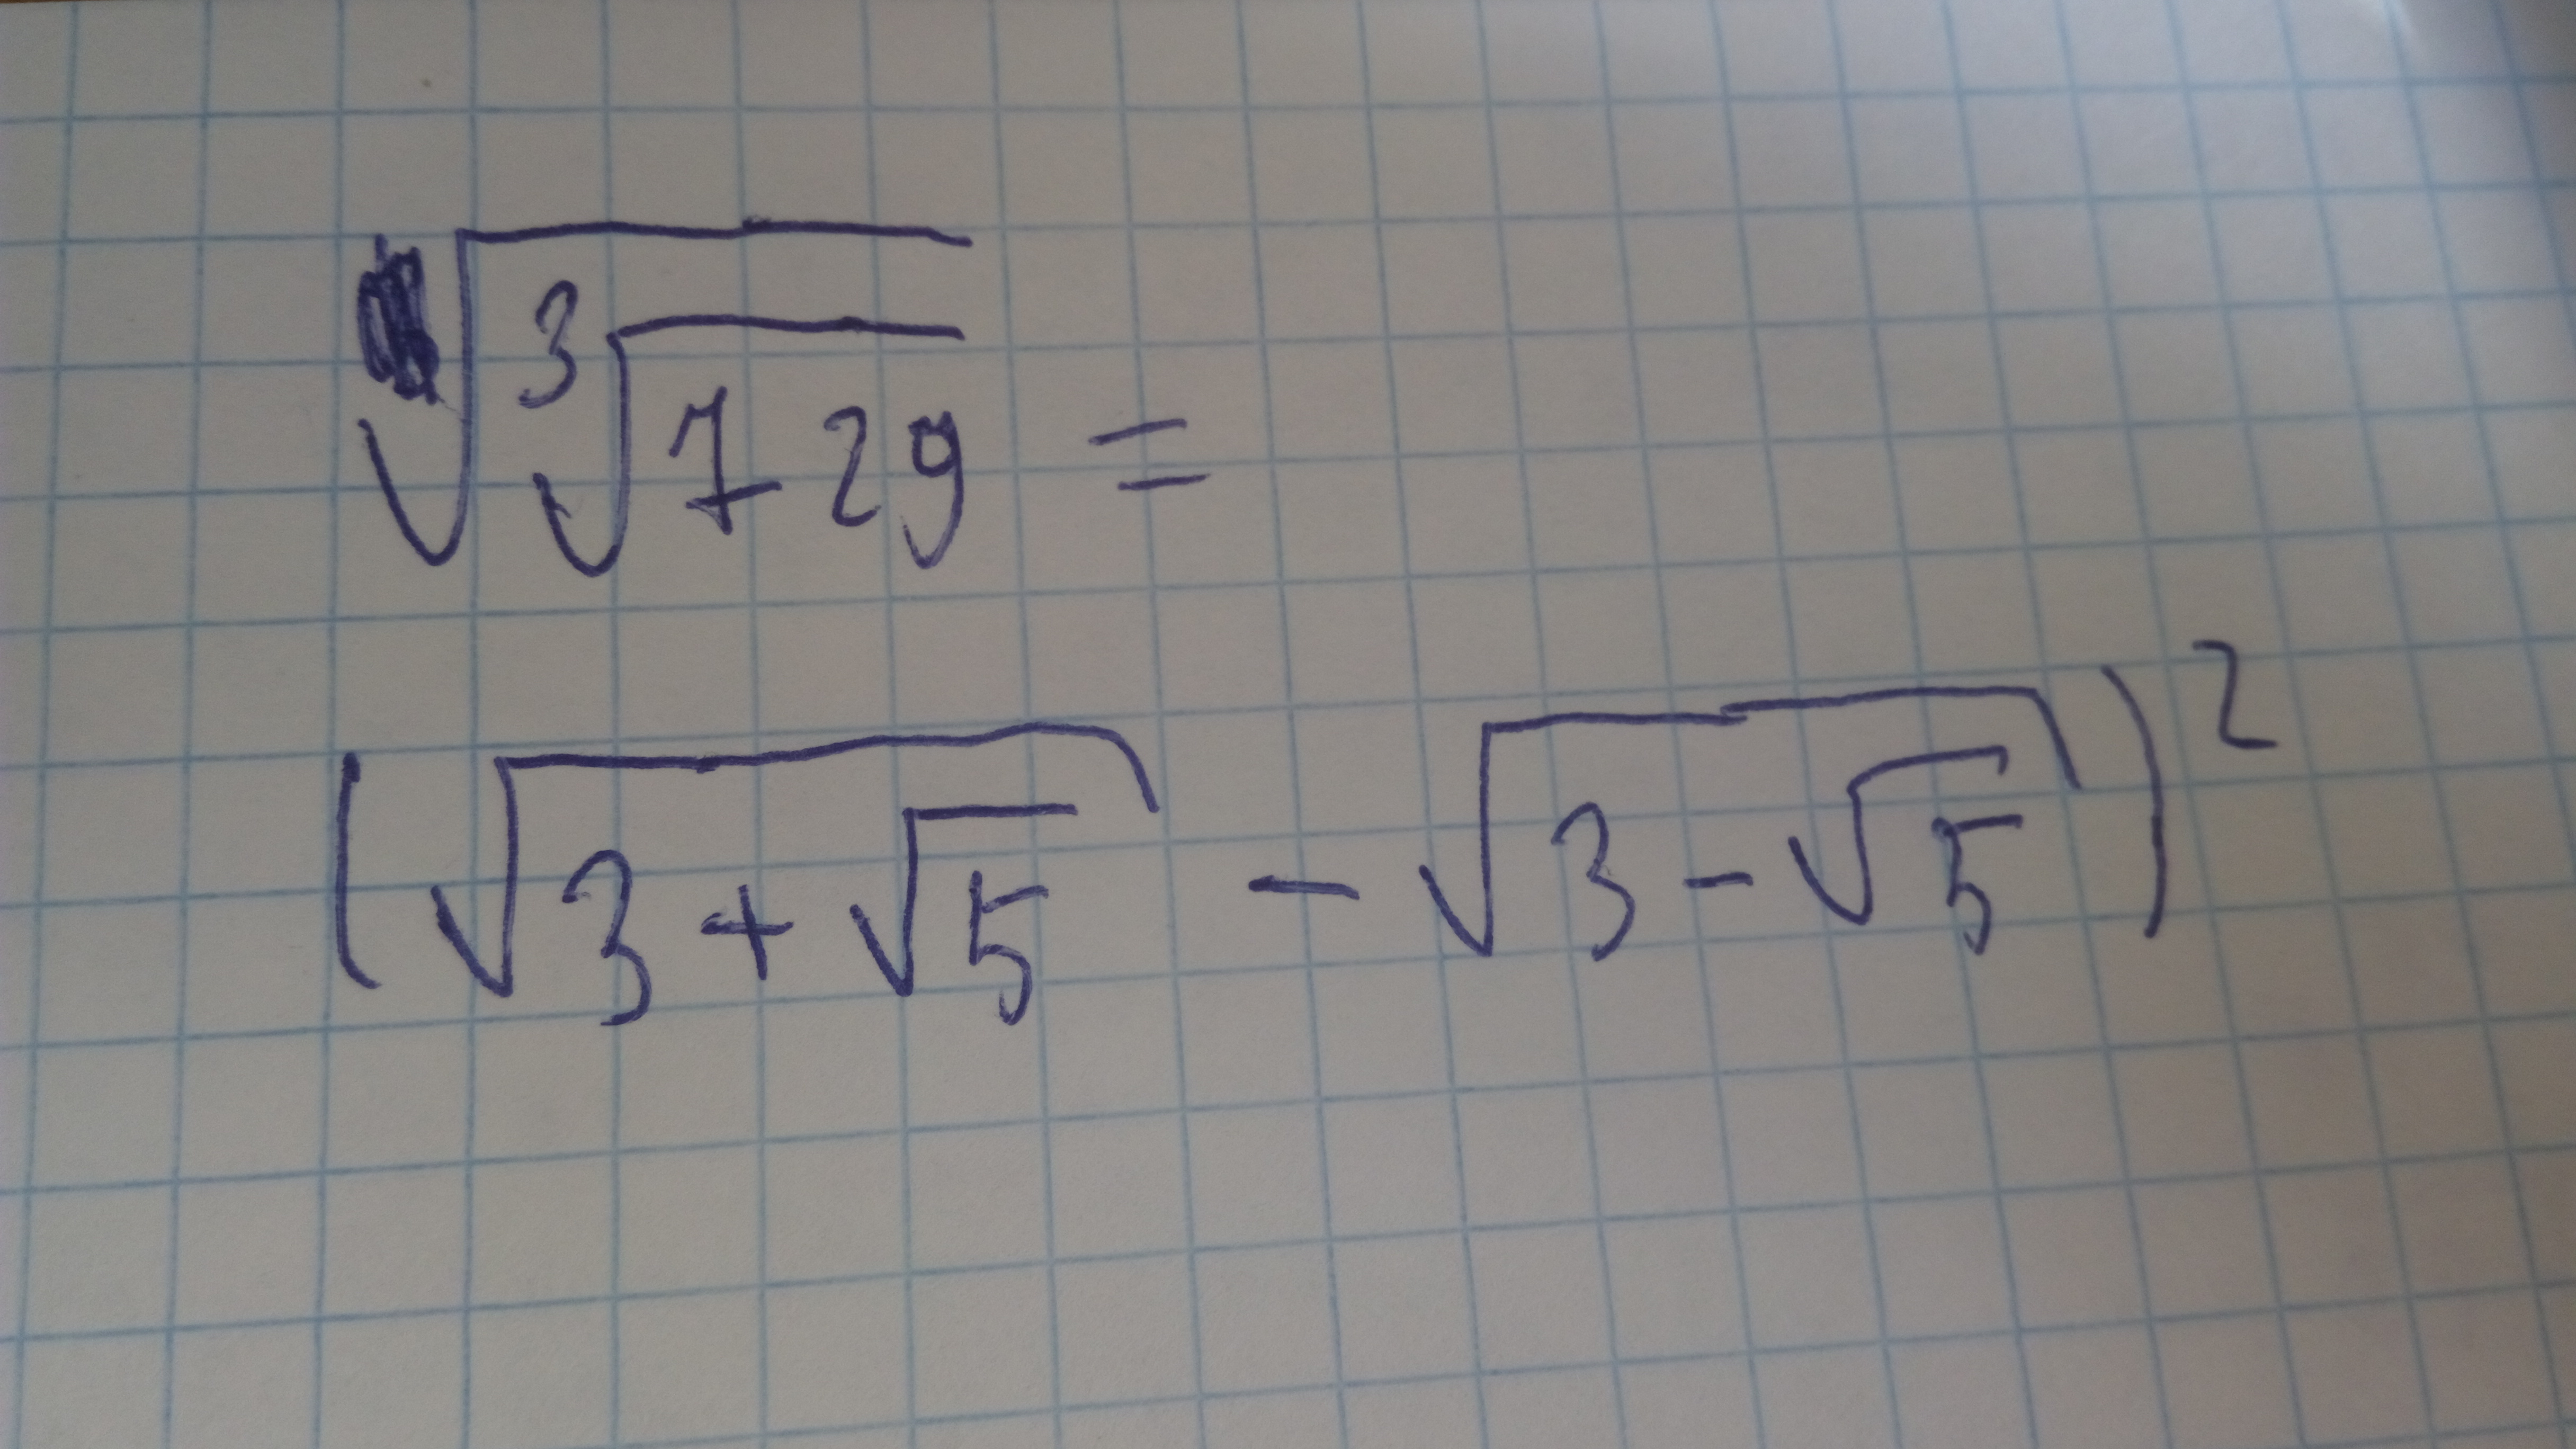 √(∛729) =
(√(3+√5) - √(3-√5))²